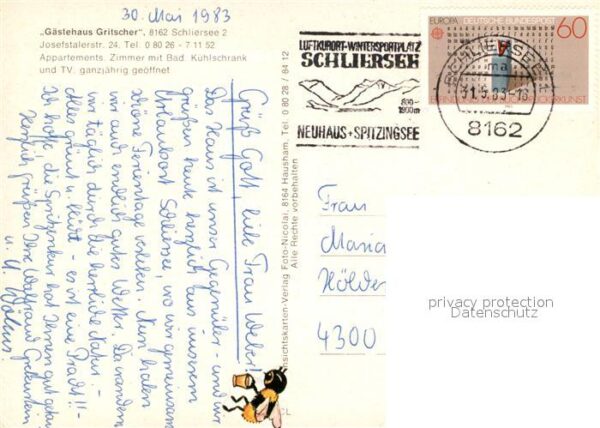 30. Mai 1983
„Gästehaus Gritscher", 8162 Schliersee 2
Josefstalerstr. 24, Tel. 0 80 26 - 7 11 52
Appartements, Zimmer mit Bad, Kühlschrank
und TV, ganzjährig geöffnet
Grüß Gott, liebe Frau Weber!
Das Haus ist unser Gegenüber - und wir
grüßen heute herzlich aus unserem
Urlaubsort Schliersee, wo wir gemeinsam
schöne Ferientage verleben. Nun haben
wir auch endlich gutes Wetter. Da wandern
wir täglich durch die herrliche Natur. -
Alles grünt u. blüht - es ist eine Pracht!! -
Ich hoffe, die Spritzenkur hat Ihnen gut getan.
Herzlich grüßen Ihre Waltraud
u.
Ansichtskarten-Verlag Foto-Nicolai, 8164 Hausham, Tel. 0 80 26 / 84 12
Alle Rechte vorbehalten
LUFTKURORT-WINTERSPORTPLATZ
SCHLIERSEE
800-
1900m
NEUHAUS+SPITZINGSEE
EUROPA DEUTSCHE BUNDESPOST 60
SCHLIERSEE 1
ma
31.5.83-16
8162
Frau
Maria
Hölder
4300
privacy protection
Datenschutz
CL